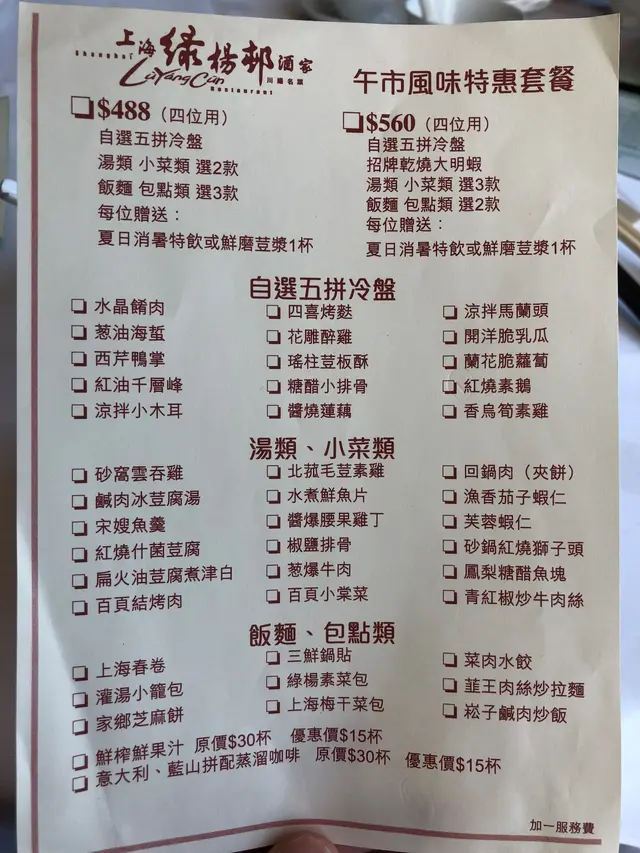 上海綠楊邨酒家
Shanghai
LuYangCun
川揚名菜
Restaurant
午市風味特惠套餐
$488（四位用）
自選五拼冷盤
湯類 小菜類 選2款
飯麵 包點類 選3款
每位贈送：
夏日消暑特飲或鮮磨荳漿1杯
$560（四位用）
自選五拼冷盤
招牌乾燒大明蝦
湯類 小菜類 選3款
飯麵 包點類 選2款
每位贈送：
夏日消暑特飲或鮮磨荳漿1杯
自選五拼冷盤
水晶餚肉
葱油海蜇
西芹鴨掌
紅油千層峰
涼拌小木耳
四喜烤麩
花雕醉雞
瑤柱荳板酥
糖醋小排骨
醬燒蓮藕
涼拌馬蘭頭
開洋脆乳瓜
蘭花脆蘿蔔
紅燒素鵝
香烏筍素雞
湯類、小菜類
砂窩雲吞雞
鹹肉冰荳腐湯
宋嫂魚羹
紅燒什菌荳腐
扁火油荳腐煮津白
百頁結烤肉
北菰毛荳素雞
水煮鮮魚片
醬爆腰果雞丁
椒鹽排骨
葱爆牛肉
百頁小棠菜
回鍋肉（夾餅）
漁香茄子蝦仁
芙蓉蝦仁
砂鍋紅燒獅子頭
鳳梨糖醋魚塊
青紅椒炒牛肉絲
飯麵、包點類
上海春卷
灌湯小籠包
家鄉芝麻餅
三鮮鍋貼
綠楊素菜包
上海梅干菜包
菜肉水餃
韮王肉絲炒拉麵
崧子鹹肉炒飯
鮮榨鮮果汁 原價$30杯 優惠價$15杯
意大利、藍山拼配蒸溜咖啡 原價$30杯 優惠價$15杯
加一服務費